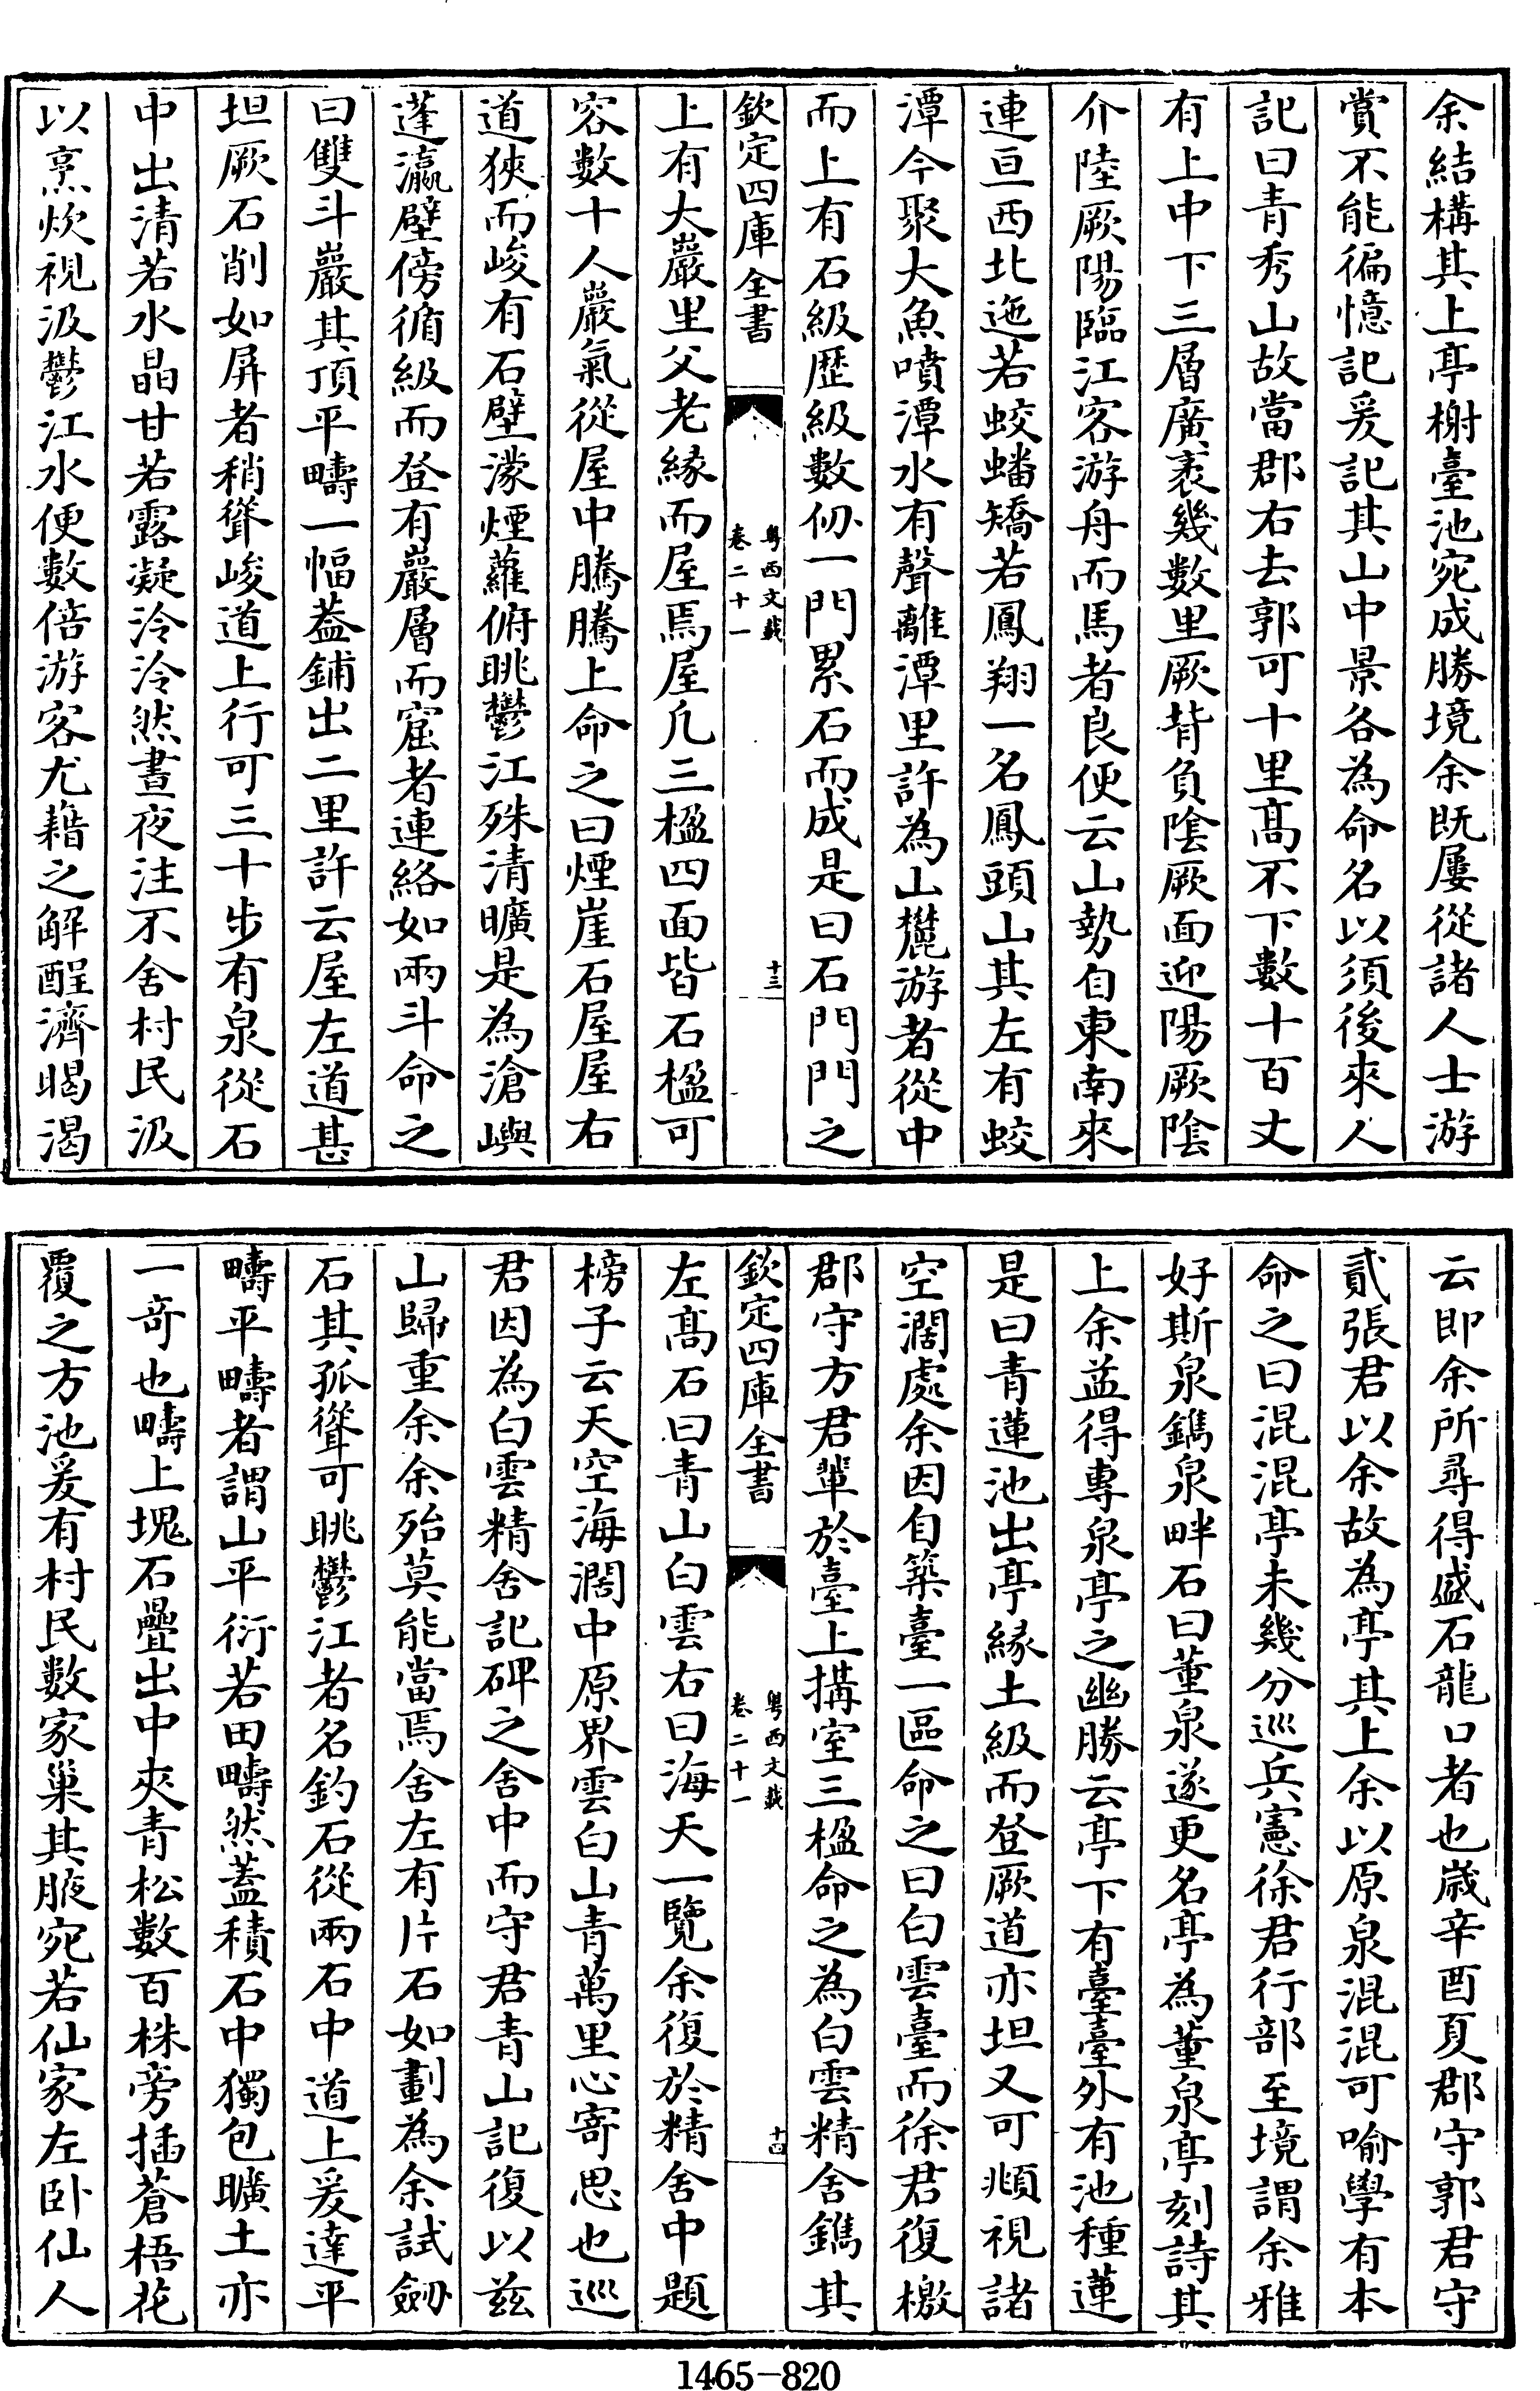 余結構其上亭榭臺池宛成勝境余既屢從諸人士游
賞不能徧憶記爰記其山中景各為命名以須後來人
記曰青秀山故當郡右去郭可十里髙不下數十百丈
有上中下三層廣袤幾數里厥背負隂厥面迎陽厥隂
介陸厥陽臨江客游舟而馬者良便云山勢自東南來
連亘西北迤若蛟蟠矯若鳳翔一名鳳頭山其左有蛟
潭今聚大魚噴潭水有聲離潭里許為山麓游者從中
而上有石級歴級數仞一門累石而成是曰石門門之
欽定四庫全書
粤西文載
卷二十一
十三
上有大巖里父老縁而屋焉屋凢三楹四面皆石楹可
容數十人巖氣從屋中騰騰上命之曰煙崖石屋屋右
道狹而峻有石壁濛煙蘿俯眺鬱江殊清曠是為滄嶼
蓬瀛壁傍循級而登有巖層而窟者連絡如兩斗命之
曰雙斗巖其頂平疇一幅葢鋪出二里許云屋左道甚
坦厥石削如屏者稍聳峻道上行可三十步有泉從石
中出清若水晶甘若露凝泠泠然晝夜注不舍村民汲
以烹炊視汲鬱江水便數倍游客尤藉之解酲濟暍渴
云即余所尋得盛石龍口者也歳辛酉夏郡守郭君守
貳張君以余故為亭其上余以原泉混混可喻學有本
命之曰混混亭未幾分巡兵憲徐君行部至境謂余雅
好斯泉鐫泉畔石曰董泉遂更名亭為董泉亭刻詩其
上余益得專泉亭之幽勝云亭下有臺臺外有池種蓮
是曰青蓮池出亭縁土級而登厥道亦坦又可頫視諸
空濶處余因自築臺一區命之曰白雲臺而徐君復檄
郡守方君輩於臺上搆室三楹命之為白雲精舍鐫其
欽定四庫全書
粤西文載
卷二十一
十四
左髙石曰青山白雲右曰海天一覽余復於精舍中題
榜子云天空海濶中原界雲白山青萬里心寄思也巡
君因為白雲精舍記碑之舍中而守君青山記復以兹
山歸重余余殆莫能當焉舍左有片石如劃為余試劒
石其孤聳可眺鬱江者名釣石從兩石中道上爰達平
疇平疇者謂山平衍若田疇然葢積石中獨包曠土亦
一竒也疇上塊石疊出中夾青松數百株旁插蒼梧花
覆之方池爰有村民數家巢其腋宛若仙家左卧仙人
1465-820